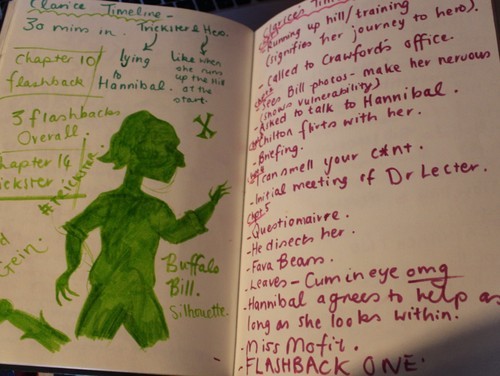 Clarice Timeline -
30 mins in.
Trickster & Hero.
lying
to
Hannibal.
Like when
she runs
up the hill
at the
start.
Chapter 10
flashback
3 flashbacks
Overall.
Chapter 14
#trickster
Gein.
Buffalo
Bill.
Silhouette.
Clarice's Timeline.
Running up hill/training
(signifies her journey to hero).
- Called to Crawford's office.
Sees Bill photos - make her nervous
(shows vulnerability)
- Asked to talk to Hannibal.
Chilton flirts with her.
- Briefing.
I can smell your c*nt.
- Initial meeting of Dr Lecter.
- Questionairre.
- He disects her.
- Fava Beans.
- Leaves - Cum in eye omg
- Hannibal agrees to help as
long as she looks within.
- Miss Mofit.
- FLASHBACK ONE.